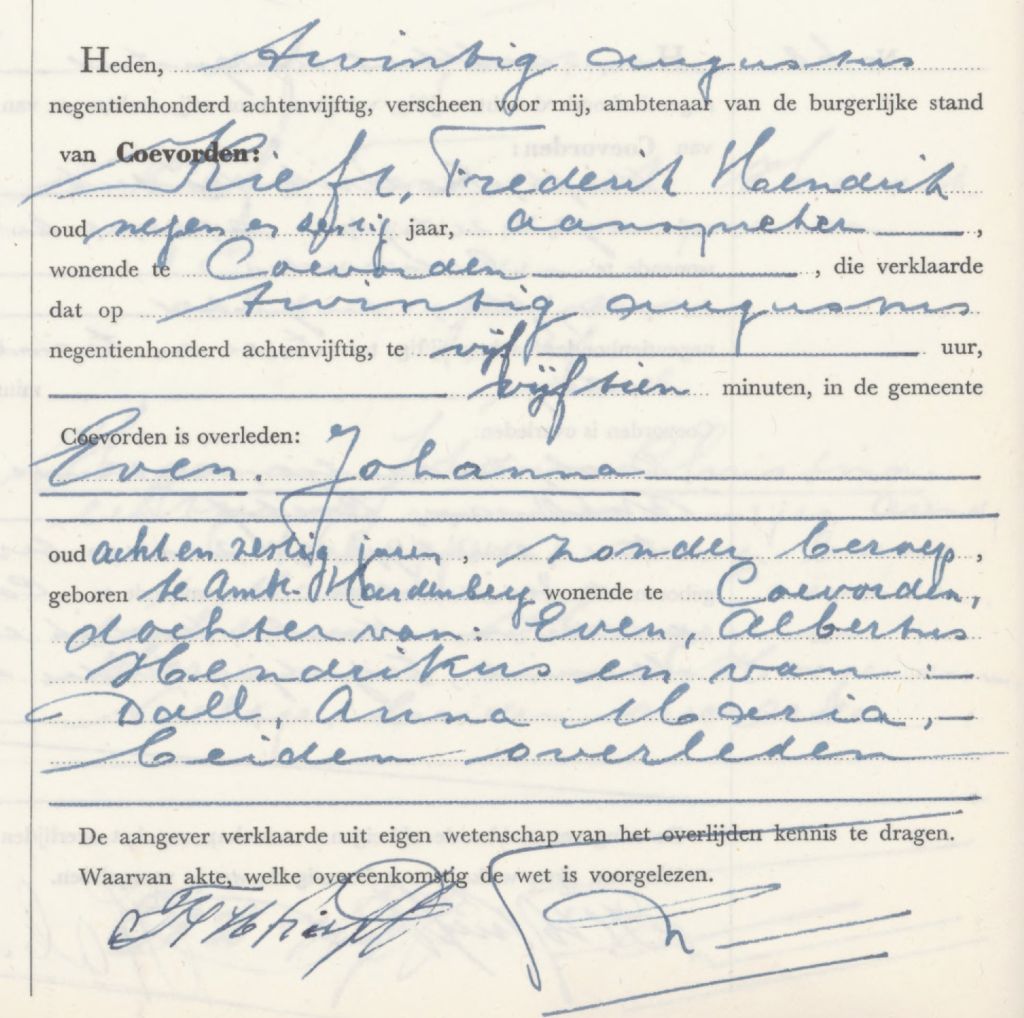 Heden, twintig augustus
negentienhonderd achtenvijftig, verscheen voor mij, ambtenaar van de burgerlijke stand
van Coevorden:
Kieft, Frederik Hendrik
oud negen en zestig jaar, aanspreker,
wonende te Coevorden, die verklaarde
dat op twintig augustus
negentienhonderd achtenvijftig, te vijf uur,
vijftien minuten, in de gemeente
Coevorden is overleden:
Even. Johanna
oud acht en zestig jaren, zonder beroep,
geboren te Amb. Hardenberg wonende te Coevorden,
dochter van: Even, Albertus
Hendrikus en van:
Dall, Anna Maria,
beiden overleden
De aangever verklaarde uit eigen wetenschap van het overlijden kennis te dragen.
Waarvan akte, welke overeenkomstig de wet is voorgelezen.